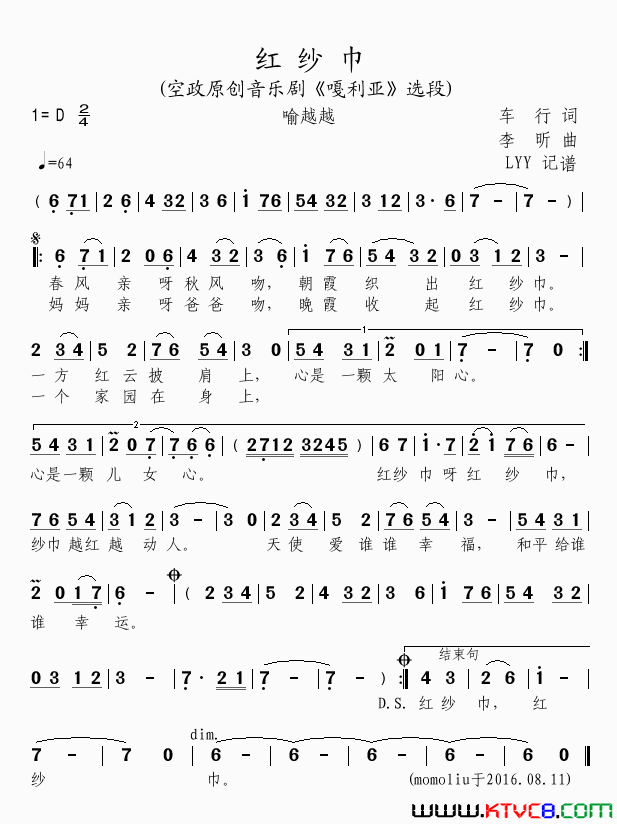 红 纱 巾
(空政原创音乐剧《嘎利亚》选段)
1= D 2/4 喻越越 车 行 词
李 昕 曲
♩=64 LYY 记谱
( 6 71 | 2 6 | 4 32 | 3 6 | i 76 | 54 32 | 3 12 | 3· 6 | 7 - | 7 - )
𝄋
|: 6 71 | 2 06 | 4 32 | 3 6 | i 76 | 54 32 | 03 12 | 3 - |
春 风 亲 呀 秋 风 吻, 朝 霞 织 出 红 纱 巾。
妈 妈 亲 呀 爸 爸 吻, 晚 霞 收 起 红 纱 巾。
1
2 34 | 5 2 | 76 54 | 3 0 | 54 31 | 2 01 | 7 - | 7 - :|
一 方 红 云 披 肩 上, 心是 一颗 太 阳 心。
一 个 家 园 在 身 上,
2
54 31 | 2 07 | 76 6 | ( 2712 3245 ) | 67 | i·7 | 2i 76 | 6 - |
心是一颗 儿 女 心。 红纱 巾 呀 红 纱 巾,
76 54 | 31 2 | 3 - | 3 0 | 2 34 | 5 2 | 76 54 | 3 - | 54 31 |
纱巾 越红 越 动 人。 天 使 爱 谁 谁 幸 福, 和平 给谁
2 017 | 6 - | ( 2 34 | 5 2 | 4 32 | 3 6 | i 76 | 54 32 |
谁 幸 运。
结束句
03 12 | 3 - | 7· 21 | 7 - | 7 - ) :| 4 3 | 2 6 | i - |
D.S. 红 纱 巾, 红
dim.
7 - | 7 0 | 6 - | 6 - | 6 - | 6 - |
纱 巾。 (momoliu于2016.08.11)
www.KTVC8.com